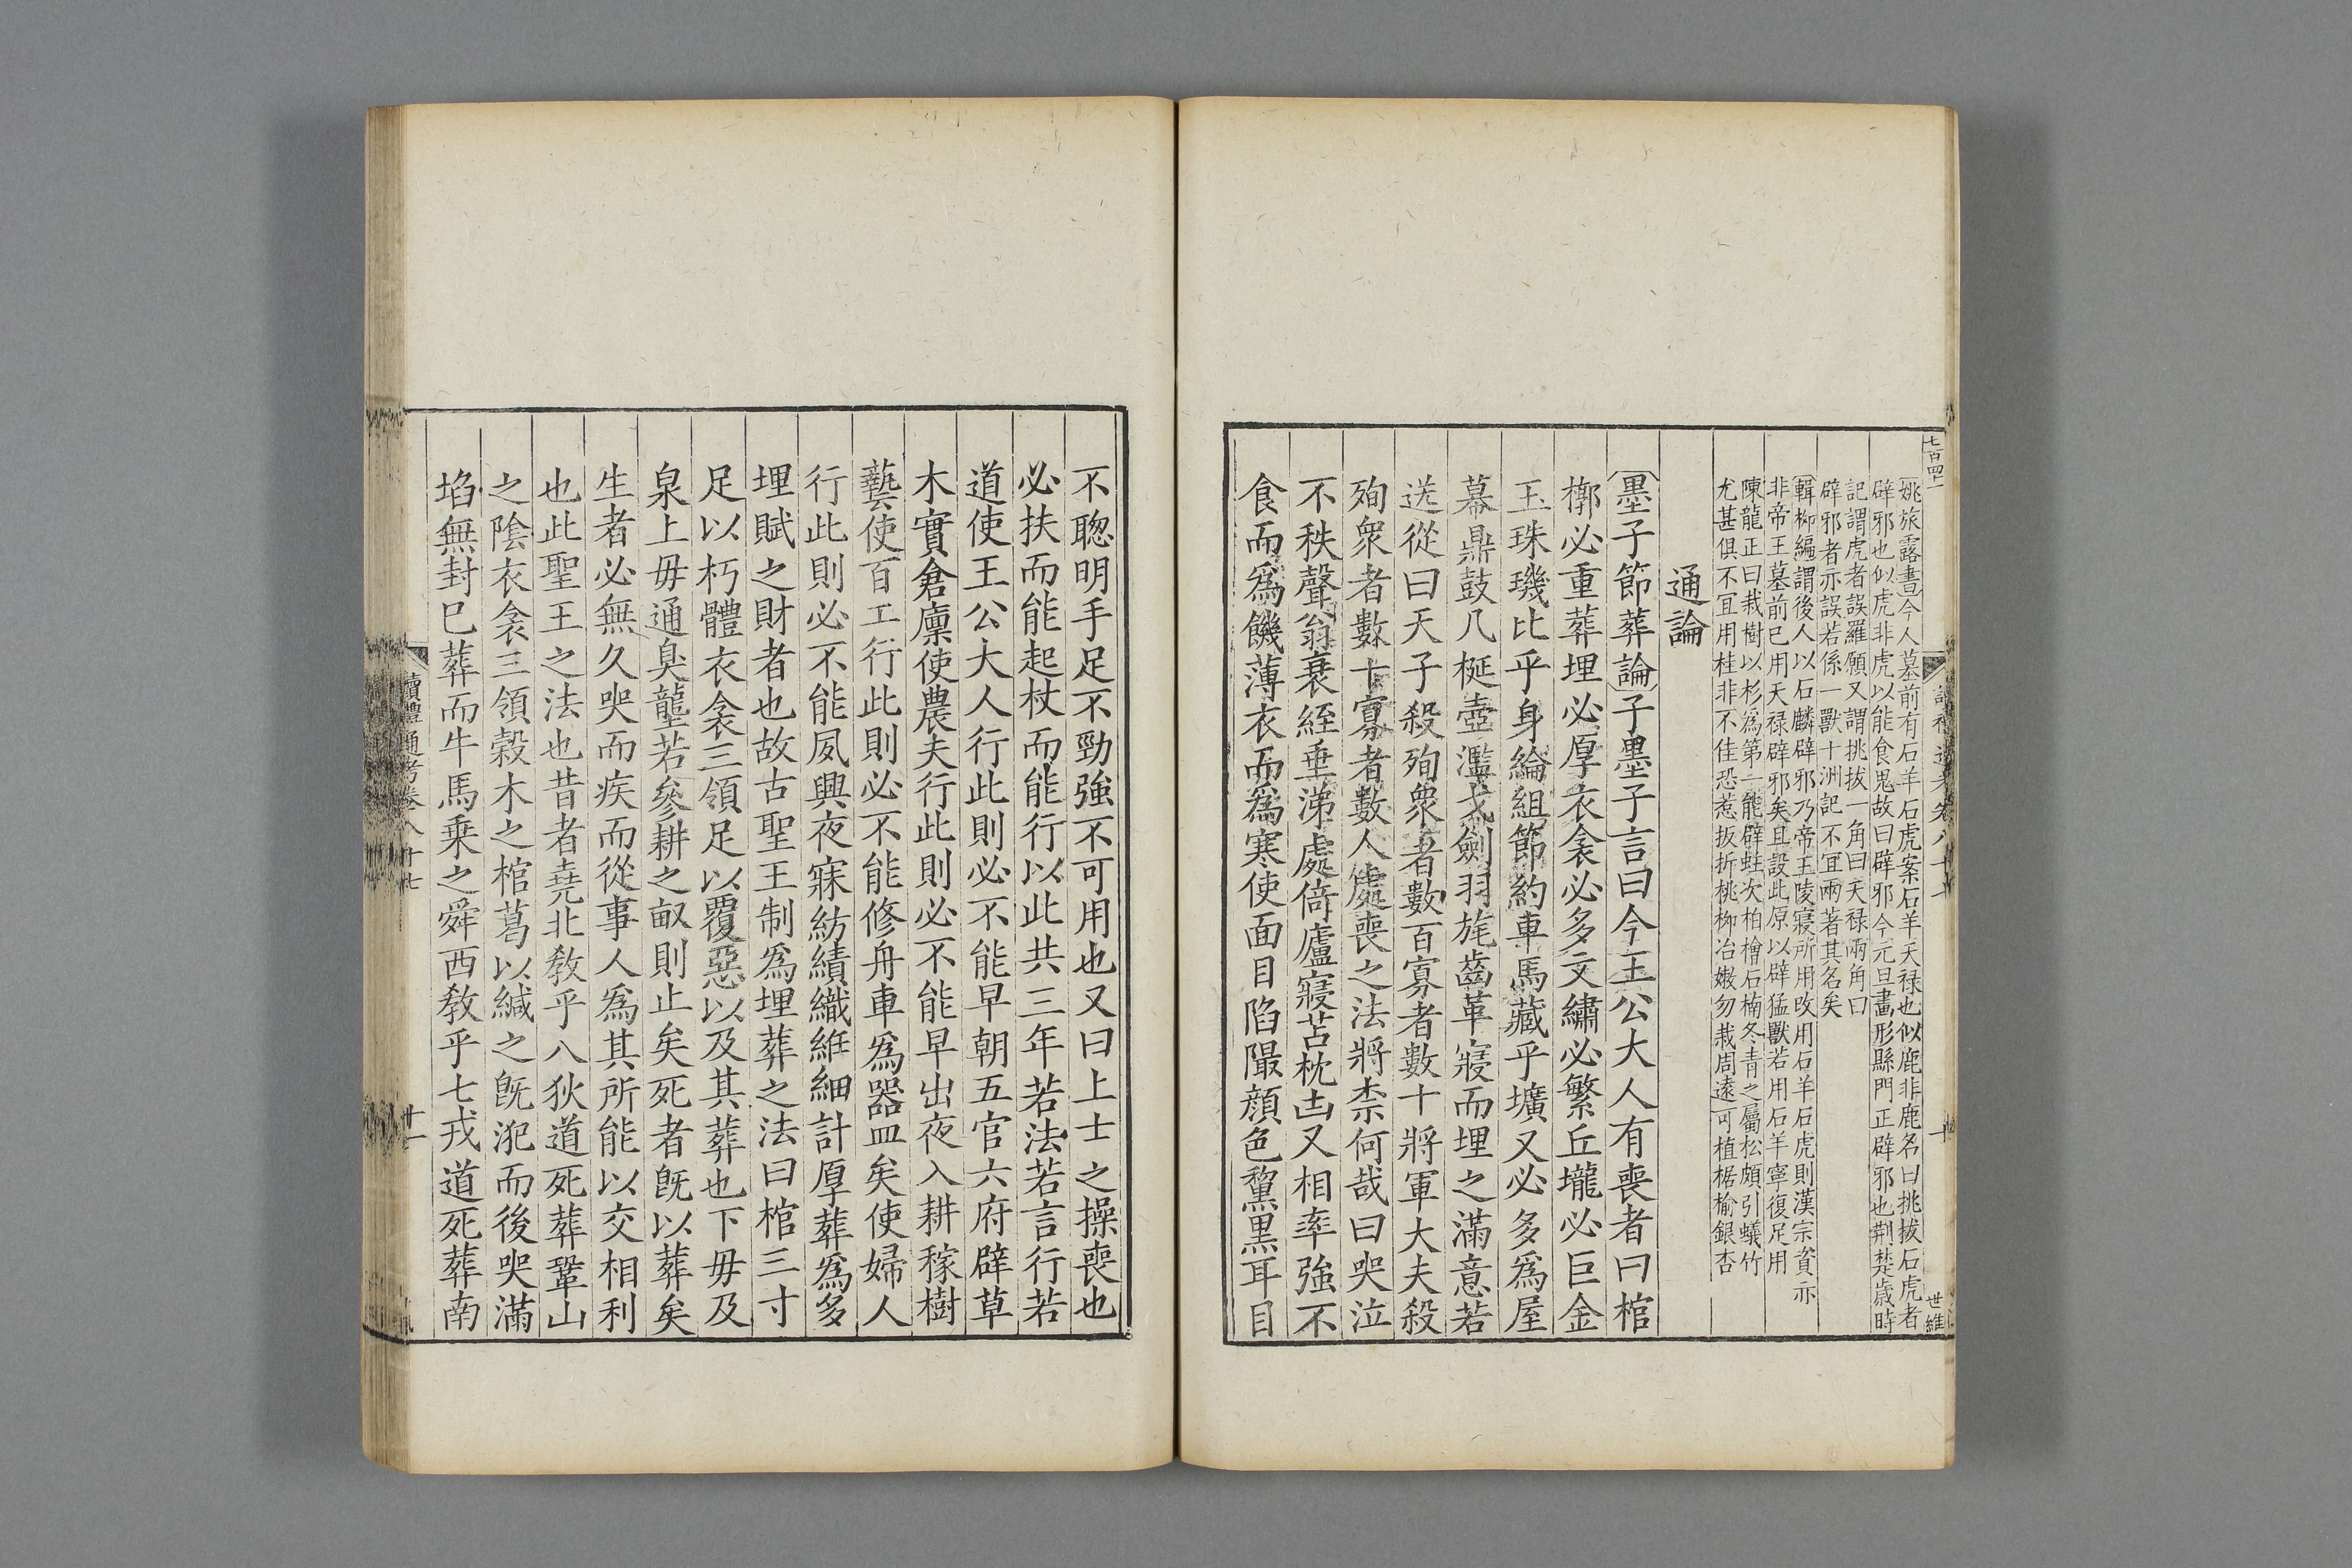 七百四十一
姚旅露書今人墓前有石羊石虎案石羊天禄也似鹿非鹿名曰挑拔石虎者
辟邪也似虎非虎以能食鬼故曰辟邪今元旦畫形縣門正辟邪也荆楚歲時
記謂虎者誤羅願又謂挑拔一角曰天禄兩角曰
辟邪者亦誤若係一獸十洲記不宜兩著其名矣
輯柳編謂後人以石麟辟邪乃帝王陵寢所用改用石羊石虎則漢宗資亦
非帝王墓前已用天禄辟邪矣且設此原以辟猛獸若用石羊寧復足用
陳龍正曰栽樹以杉為第一能辟蛀次柏檜石楠冬青之屬松頗引蟻竹
尤甚俱不宜用桂非不佳恐惹扳折桃柳冶嫩勿栽周遠可植椐榆銀杏
通論
墨子節葬論子墨子言曰今王公大人有喪者曰棺
槨必重葬埋必厚衣衾必多文繡必繁丘壠必巨金
玉珠璣比乎身綸組節約車馬藏乎壙又必多爲屋
幕鼎鼓几梴壺濫戈劍羽旄齒革寢而埋之滿意若
送從曰天子殺殉衆者數百寡者數十將軍大夫殺
殉衆者數十寡者數人處喪之法將柰何哉曰哭泣
不秩聲翁衰絰垂涕處倚廬寢苫枕凷又相率強不
食而爲饑薄衣而爲寒使面目陷陬顔色黧黒耳目
不聰明手足不勁強不可用也又曰上士之操喪也
必扶而能起杖而能行以此共三年若法若言行若
道使王公大人行此則必不能早朝五官六府辟草
木實倉廩使農夫行此則必不能早出夜入耕稼樹
藝使百工行此則必不能修舟車爲器皿矣使婦人
行此則必不能夙興夜寐紡績織維細計厚葬爲多
埋賦之財者也故古聖王制爲埋葬之法曰棺三寸
足以朽體衣衾三領足以覆惡以及其葬也下毋及
泉上毋通臭壟若參耕之畝則止矣死者旣以葬矣
生者必無久哭而疾而從事人爲其所能以交相利
也此聖王之法也昔者堯北敎乎八狄道死葬鞏山
之陰衣衾三領榖木之棺葛以緘之旣㲼而後哭滿
埳無封已葬而牛馬乗之舜西敎乎七戎道死葬南
讀禮通考卷八十七
十一